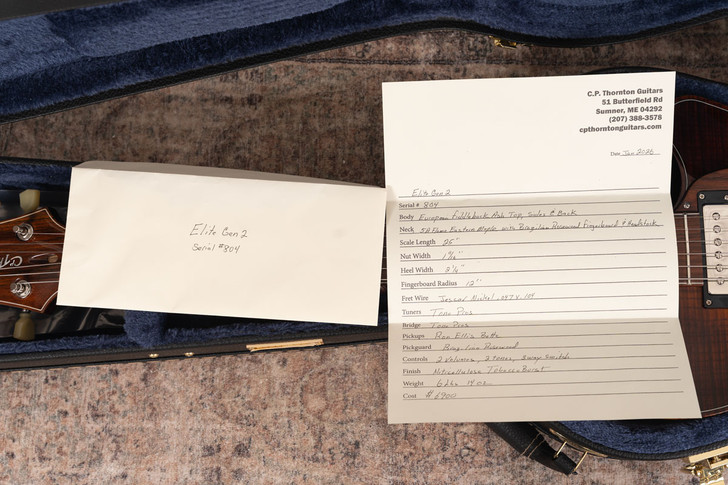 Elite Gen 2
Serial #804
C.P. Thornton Guitars
51 Butterfield Rd
Sumner, ME 04292
(207) 388-3578
cpthorntonguitars.com
Date Jan 2025
Elite Gen 2
Serial # 804
Body European Fiddleback Ash Top, Sides & Back
Neck Flame Eastern Maple with Brazilian Rosewood Fingerboard & Headstock
Scale Length 25"
Nut Width
Heel Width
Fingerboard Radius 12"
Fret Wire Jescar Nickel
Tuners Tone Pros
Bridge Tone Pros
Pickups Ron Ellis
Pickguard Brazilian Rosewood
Controls 2 Volumes, 2 Tones, 3way Switch
Finish Nitrocellulose Tobacco Burst
Weight 6 Lbs 14 oz.
Cost $6900